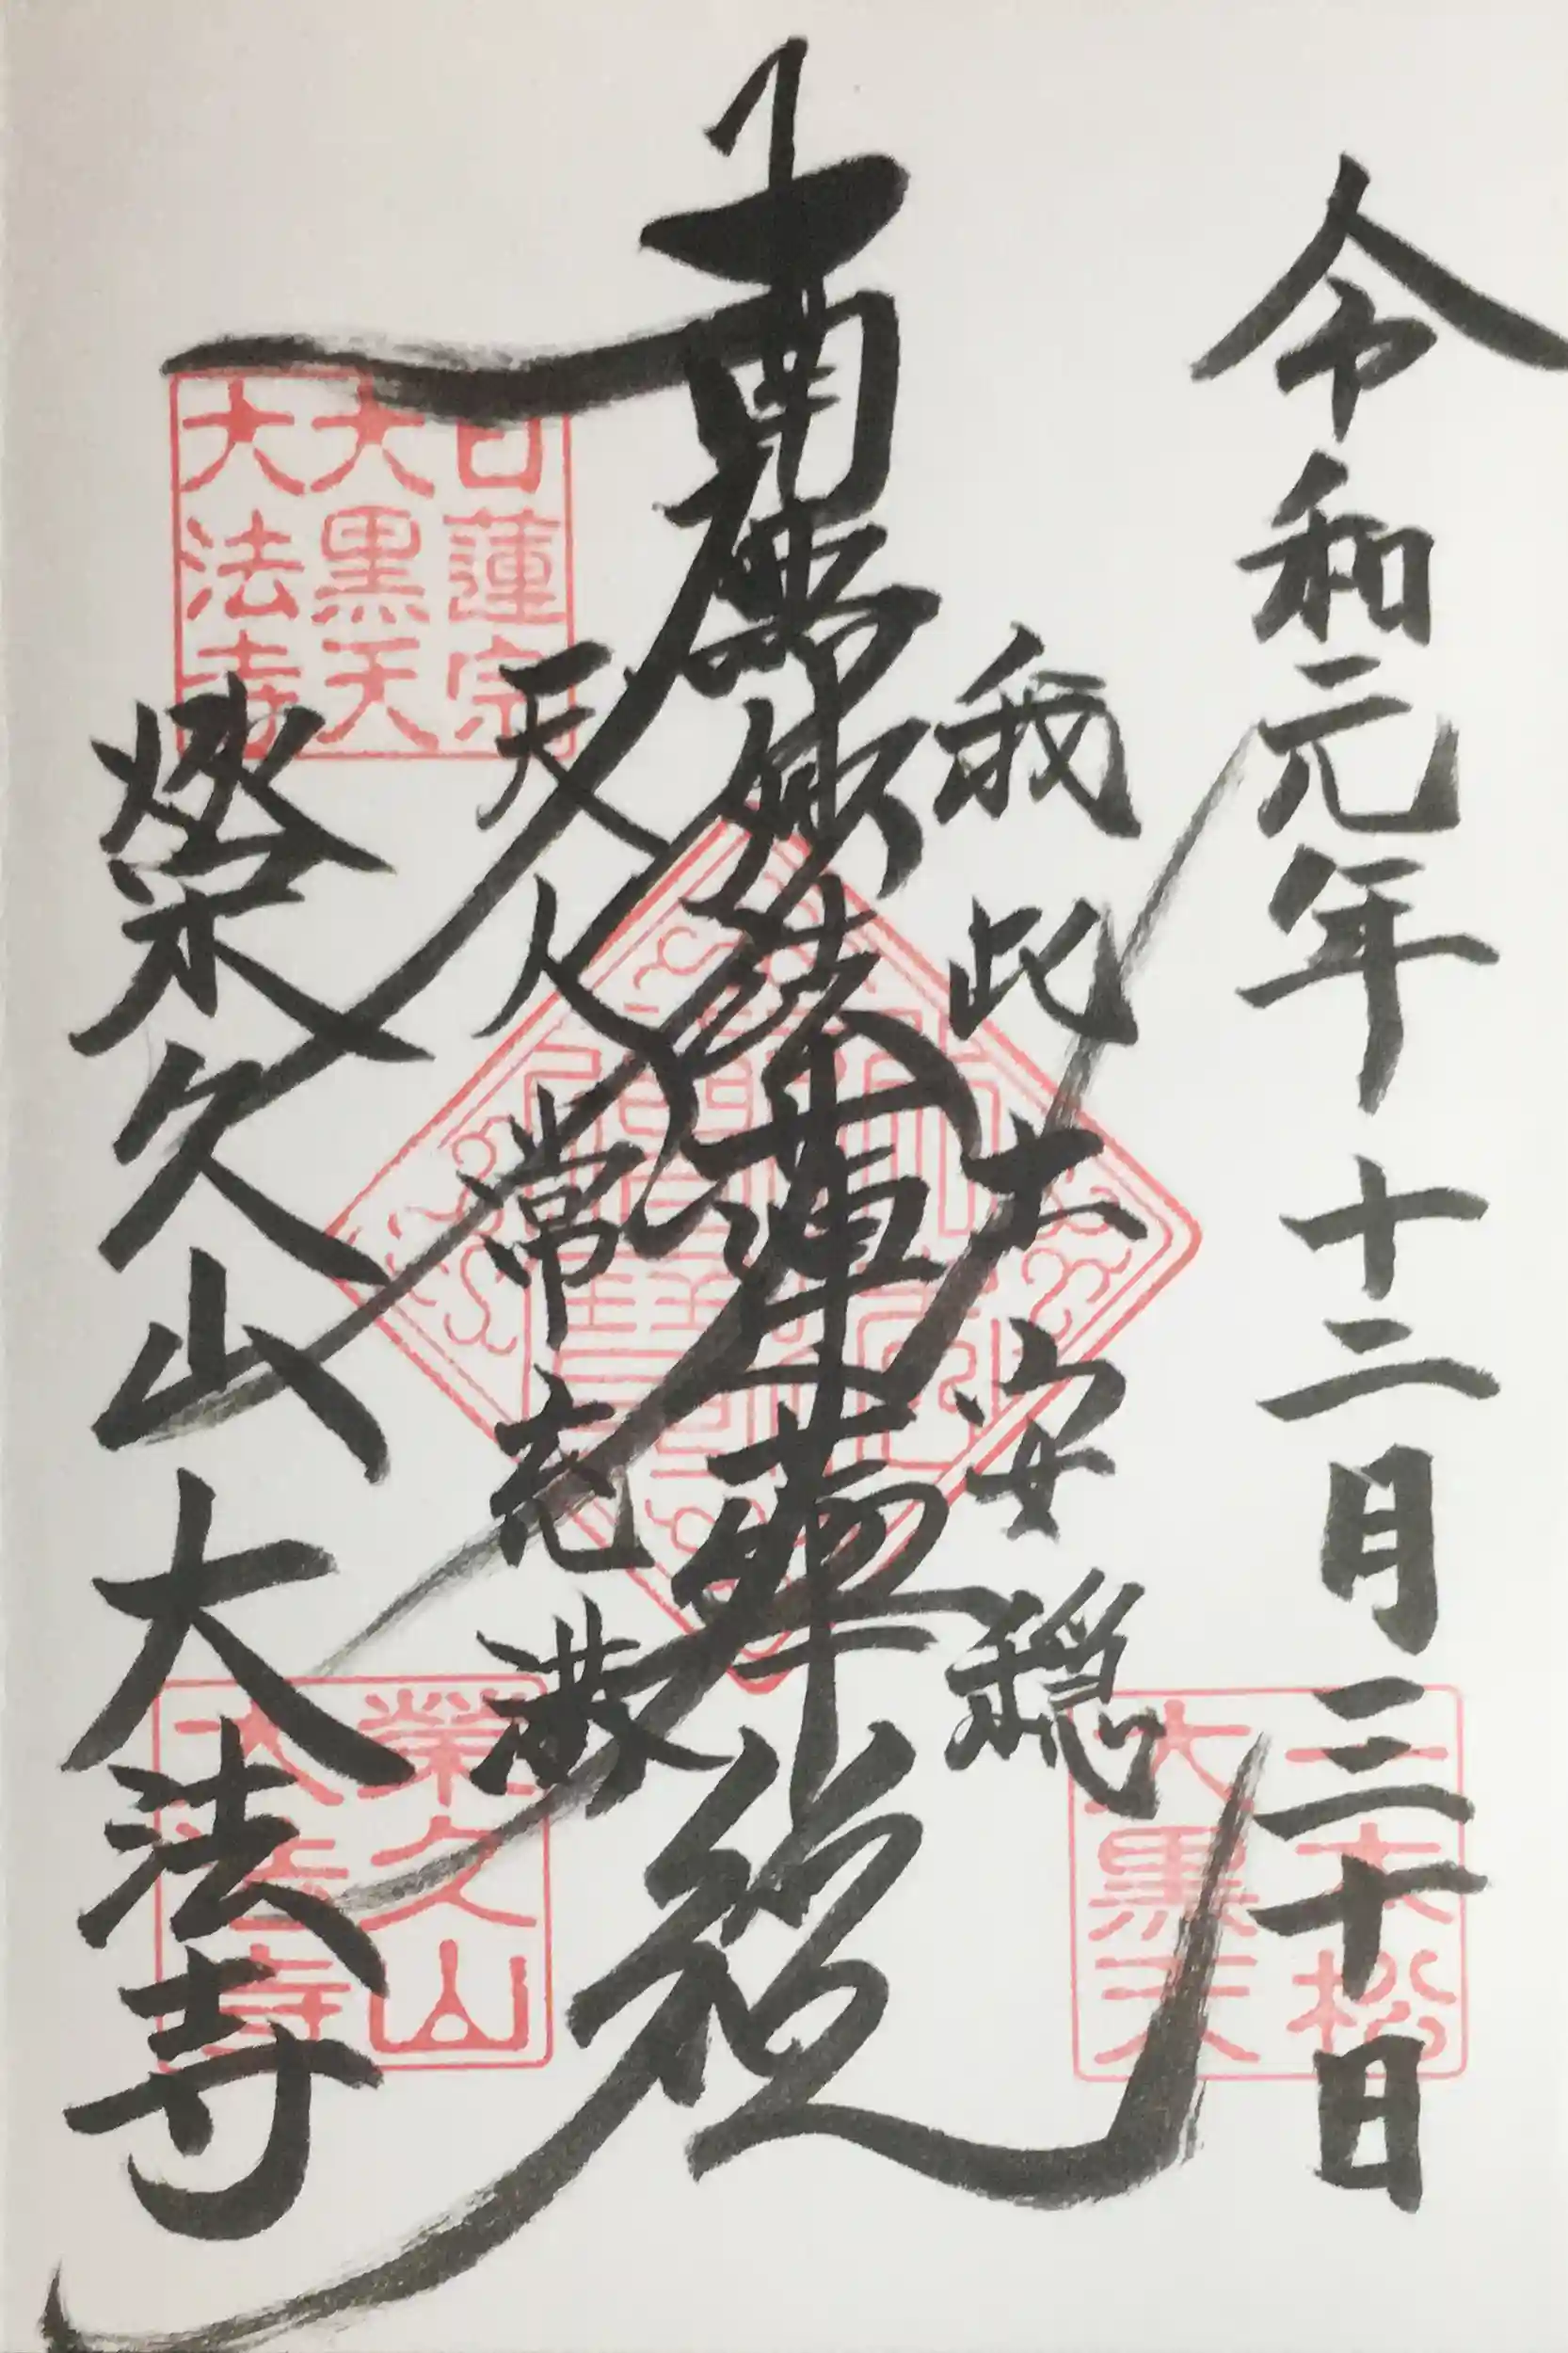 令和元年十二月三十日
我此土安穏
南無妙法蓮華経
天人常充満
榮久山大法寺
日蓮宗
大黒天
大法寺
大黒天
榮久山
大法寺